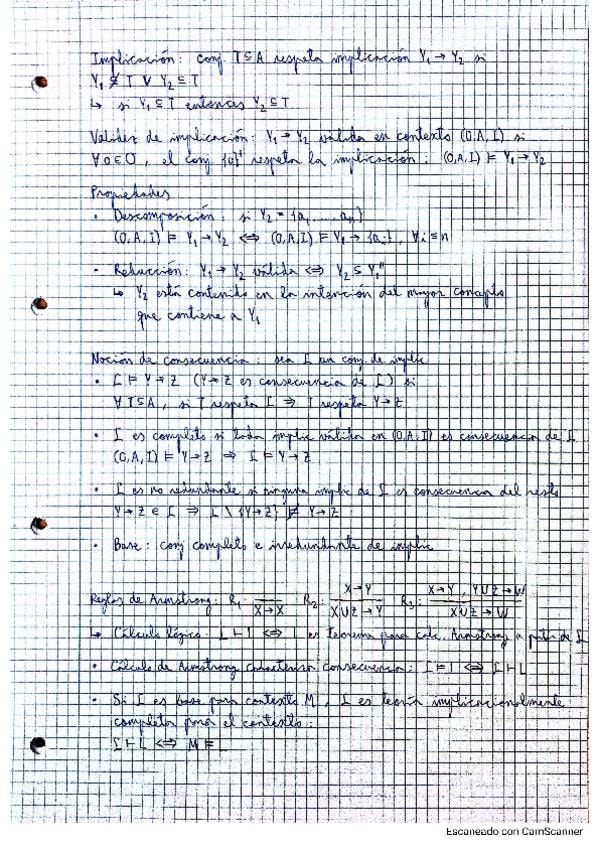 Implicación: conj T ⊆ A respeta implicación Y₁ → Y₂ si
Y₁ ⊄ T ∨ Y₂ ⊆ T
↳ si Y₁ ⊆ T entonces Y₂ ⊆ T
Validez de implicación: Y₁ → Y₂ válida en contexto (O,A,I) si
∀o∈O, el conj {o}' respeta la implicación: (O,A,I) ⊨ Y₁ → Y₂
Propiedades
• Descomposición: si Y₂ = {a₁, ..., aₙ}
(O,A,I) ⊨ Y₁ → Y₂ ⟺ (O,A,I) ⊨ Y₁ → {aᵢ}, ∀i ≤ n
• Reducción: Y₁ → Y₂ válida ⟺ Y₂ ⊆ Y₁''
↳ Y₂ está contenido en la intención del mayor concepto
que contiene a Y₁
Noción de consecuencia: sea L un conj de implic
• L ⊨ Y → Z (Y → Z es consecuencia de L) si
∀T ⊆ A, si T respeta L ⇒ T respeta Y → Z
• L es completo si toda implic válida en (O,A,I) es consecuencia de L
(O,A,I) ⊨ Y → Z ⇒ L ⊨ Y → Z
• L es no redundante si ninguna implic de L es consecuencia del resto
Y → Z ∈ L ⇒ L \ {Y → Z} ⊭ Y → Z
• Base: conj completo e irredundante de implic
Reglas de Armstrong: R₁ ―/X → X R₂: X → Y/X∪Z → Y R₃: X → Y, Y∪Z → W/X∪Z → W
↳ Cálculo lógico: L ⊢ l ⟺ l es teorema para calc. Armstrong a partir de L
• Cálculo de Armstrong caracteriza consecuencia: L ⊨ l ⟺ L ⊢ l
• Si L es base para contexto M, L es teoría implicacionalmente
completa para el contexto:
L ⊢ l ⟺ M ⊨ l
Escaneado con CamScanner